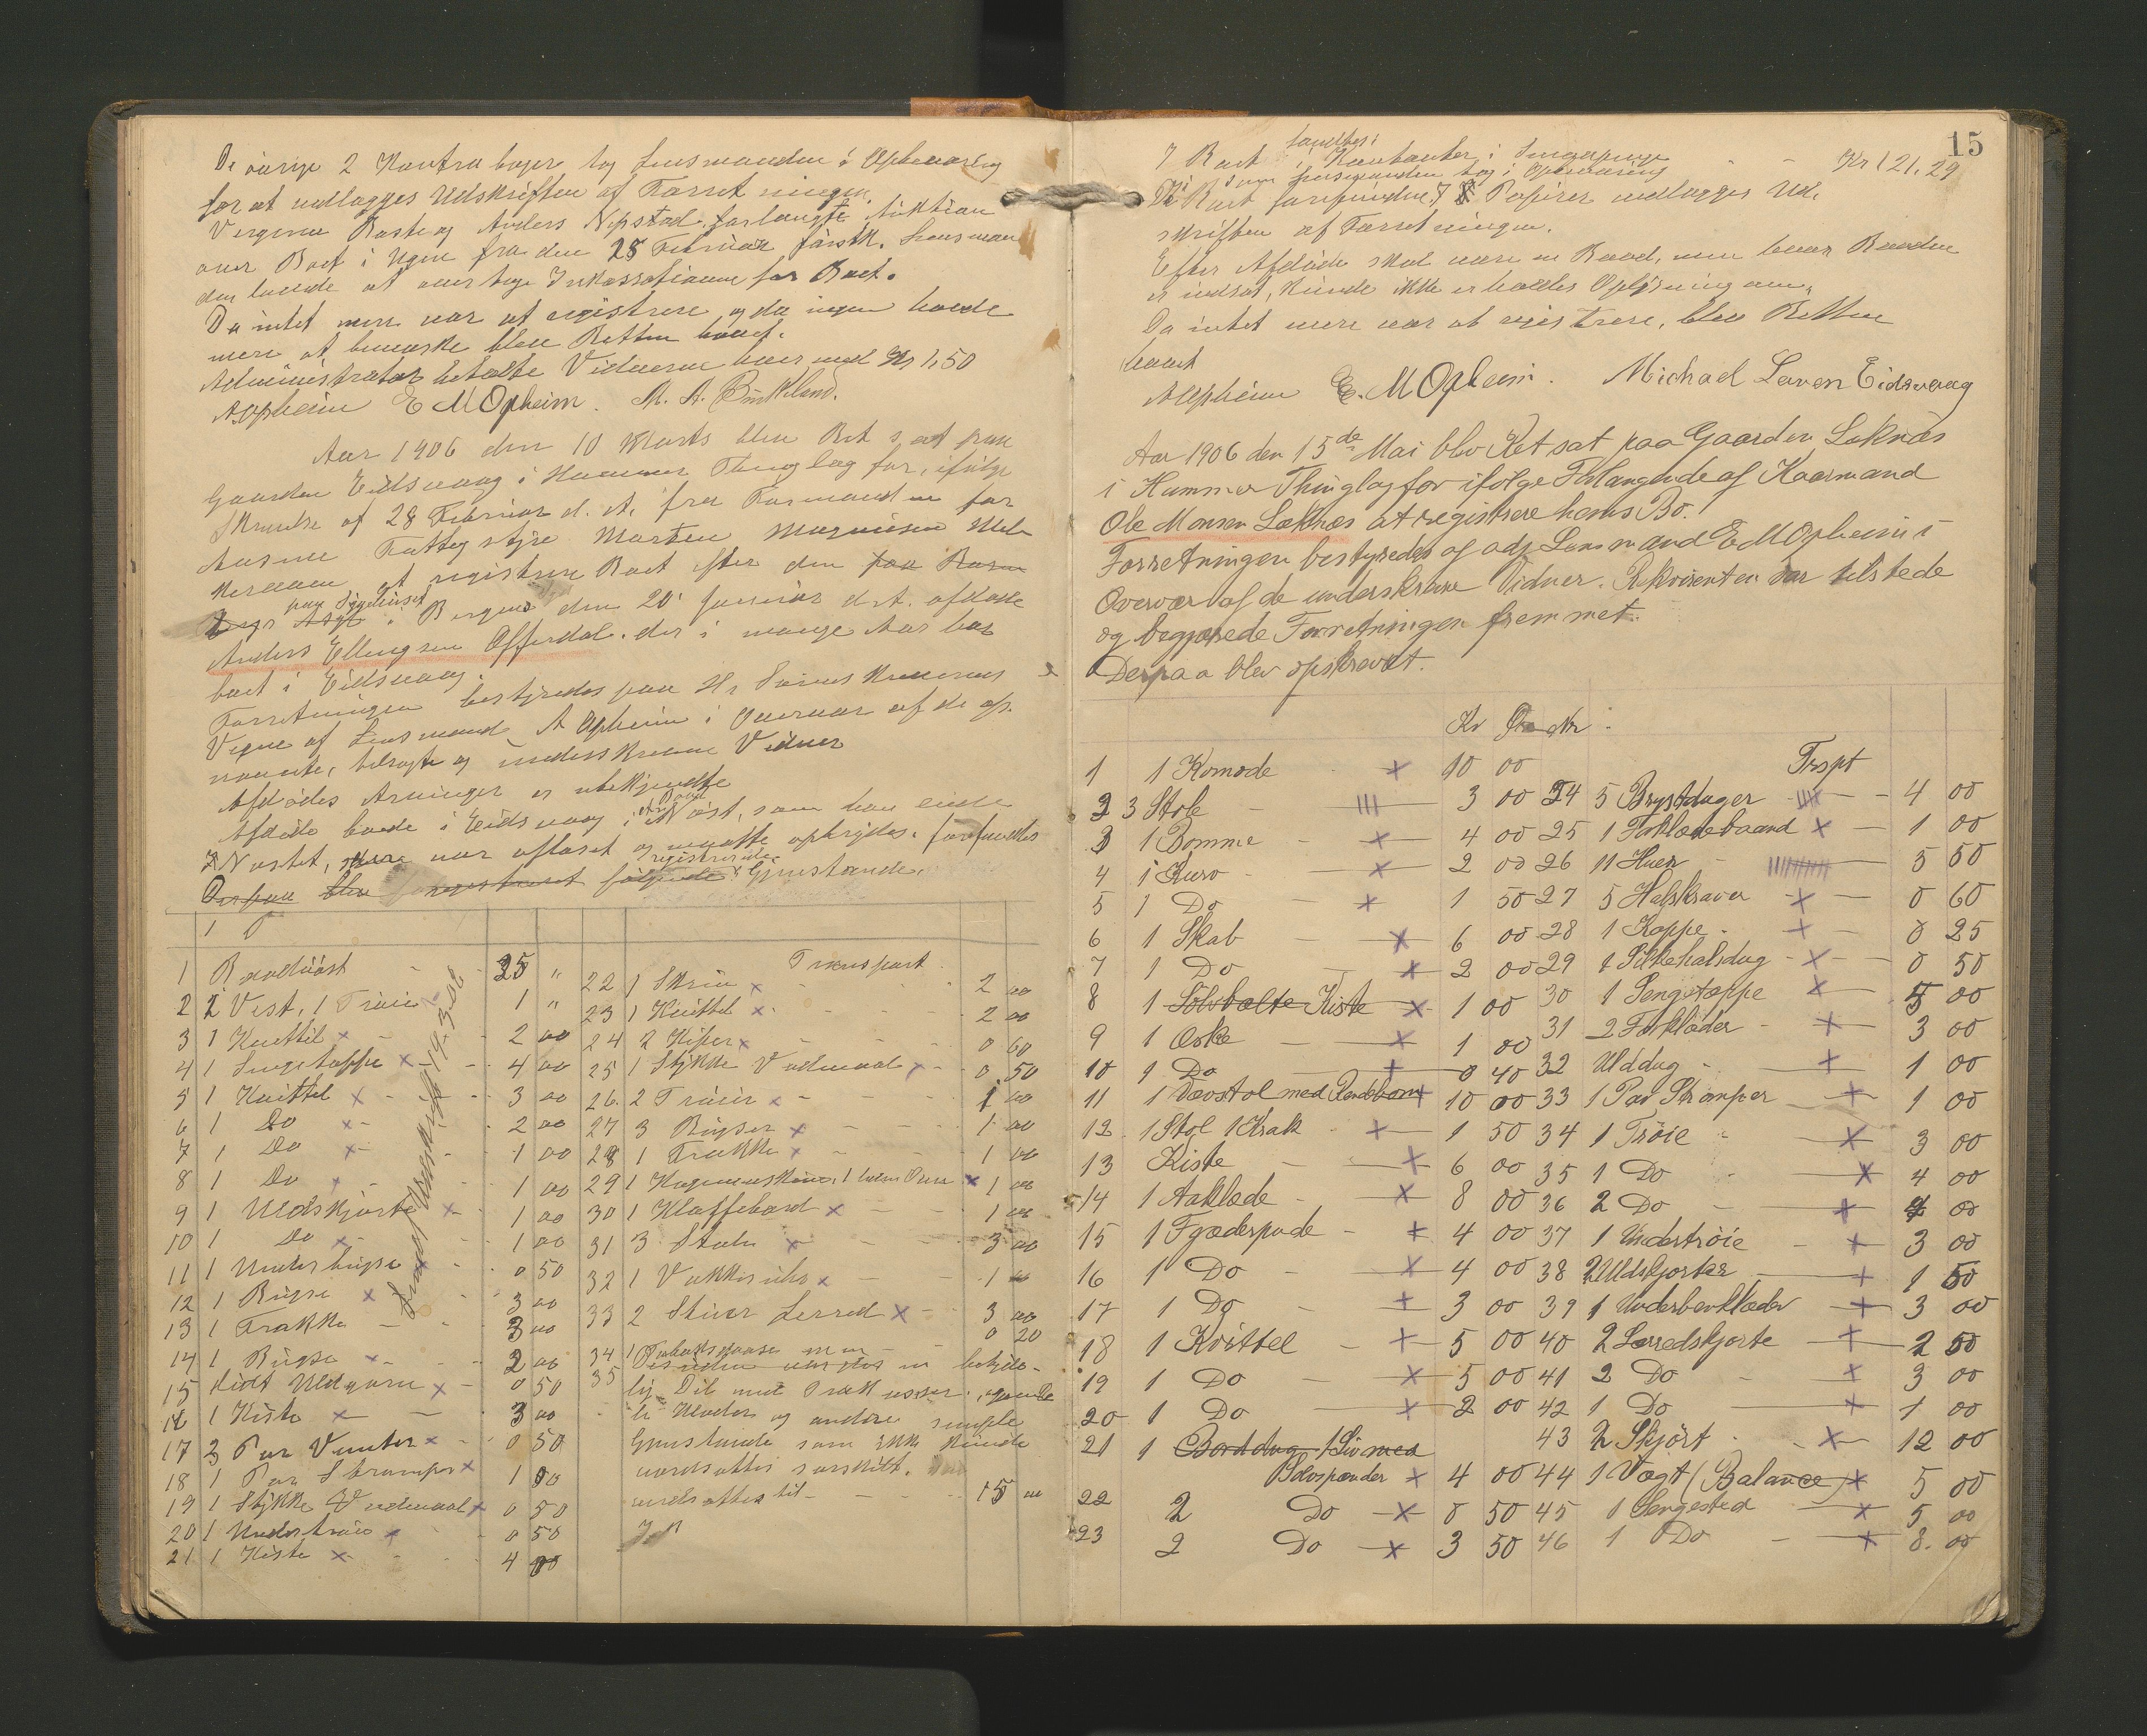 De øvrige 2 Kontrabøger tog Lensmanden i Opbevaring
for at vedlægges Udskriften af Forretningen.
Vergerne og Anders forlangte Auktion
over Boet i Ugen fra den 25 Februar førstk. Lensman
den lovede at overtage Inkassationen for Boet.
Da intet mere var at registrere og da ingen havde
mere at bemærke blev Retten hævet.
Administrator betalte Vidnerne hver med Kr 1,50
AOpheim E M Opheim. M. A.
Aar 1906 den 10 Marts blev Ret sat paa
Gaarden Eidsvaag i Hammer Thinglag for, ifølge
Skrivelse af 28 Februar d. A. fra Formanden for
Aasene Fattigstyre Morten Magnusen
at registrere Boet efter den paa
paa Sygehuset
i Bergen den 20 Januar d. A. afdøde
Anders Ellingsen Offerdal. der i mange Aar har
boet i Eidsvaag.
Forretningen bestyredes paa Hr Sorenskriverens
Vegne af Lensmand A Opheim i Overvær af de op-
nævnte, tilsagte og underskrevne Vidner
Afdødes Arvinger er ubekjendte
Afdøde boede i Eidsvaag i et Nøst, som han eiede
Nøstet, var aflaset og maatte opbrydes. forfandtes
registrerede
Derpaa blev registreret følgende Gjenstande.
1 Baadnøst 25 "
2 1 Vest, 1 Trøie 1 "
3 1 Kvittel x 2 00
4 1 Sengetæppe x 4 00
5 1 Kvittel x 3 00
6 1 Do x 2 00
7 1 Do x 1 00
8 1 Do x 1 00
9 1 Uldskjorte x 1 00
10 1 Do x 1 00
11 1 Underbugse x 0 50
12 1 Bugse x 3 00
13 1 Frakke 3 00
14 1 Bugse x 2 00
15 Lidt Uldgarn x 0 50
16 1 Kiste x 3 00
17 3 Par Vanter x 0 50
18 1 Par Strømper x 1 00
19 1 Stykke Vadmaal x 0 50
20 1 Undertrøie x 0 50
21 1 Kiste x 4 00
Transport
22 1 Skrin x 2 00
23 1 Kvittel x 2 00
24 2 Kiper x 0 60
25 1 Stykke Vadmaal x 0 50
26 2 Trøier x 1 00
27 3 Bugser x 1 00
28 1 Frakke x 1 00
29 1 x 1 00
30 1 Klaffebord x 1 00
31 3 Stole x 3 00
32 1 Vækkeruhr x 1 00
33 2 Stuver Lerred x 3 00
34 1 Tobaksdaase m m 0 20
35 Desuden var der en betyde-
lig Del gamle
Klæder og andre simple
Gjenstande som ikke kunde
værdsættes særskilt.
værdsættes til 15 00
15
I Boet fandtes i Kontanter i Kr 121,29
som Lensmanden tog i Opbevaring
De i Boet forefundne 7 Papirer vedlægges Ud-
skriften af Forretningen.
Efter Afdøde skal være en Baad, men hvor Baaden
er indsat, kunde ikke erholdes Oplysning om.
Da intet mere var at registrere, blev Retten
hævet
AOpheim E. M Opheim. Michael Larsen Eidsvaag
Aar 1906 den 15de Mai blev Ret sat paa Gaarden Løknæs
i Hammer Thinglag for ifølge Forlangende af Kaarmand
Ole Monsen Løknæs at registrere hans Bo.
Forretningen bestyredes af adj. Lensmand E M Opheim i
Overvær af de underskrevne Vidner. Rekvirenten var tilstede
og begjærede Forretningen fremmet.
Derpaa blev opskrevet.
Kr Øre
1 1 Komode x 10 00
2 3 Stole 3 00
3 1 Bomme x 4 00
4 1 Kurv x 2 00
5 1 Do x 1 50
6 1 Skab x 6 00
7 1 Do x 2 00
8 1 Sølvbælte Kiste x 1 00
9 1 Æske x 1 00
10 1 Do x 0 40
11 1 Vævstol med x 10 00
12 1 Stol 1 Krak x 1 50
13 Kiste x 6 00
14 1 Aaklæde x 8 00
15 1 Fjæderpude x 4 00
16 1 Do x 4 00
17 1 Do x 3 00
18 1 Kvittel x 5 00
19 1 Do x 5 00
20 1 Do x 2 00
21 1 Borddug 1 Liv med
Sølvspænder x 4 00
22 2 Do x 0 50
23 2 Do x 3 50
Trspt
24 5 Brystduger 4 00
25 1 Forklædebaand x 1 00
26 11 Huer 5 50
27 5 Halskraver x 0 60
28 1 Kappe x 0 25
29 1 Silkehalsdug x 0 50
30 1 Sengetæppe x 5 00
31 2 Forklæder x 3 00
32 Ulddug x 1 00
33 1 Par Strømper x 1 00
34 1 Trøie x 3 00
35 1 Do x 4 00
36 2 Do x 4 00
37 1 Undertrøie x 3 00
38 2 Uldskjorter x 1 50
39 1 Underbenklæder x 3 00
40 2 Lærredskjorte x 2 50
41 2 Do x 3 00
42 1 Do x 1 00
43 2 Skjørt x 12 00
44 1 Vægt (Balance) x 5 00
45 1 Sengested x 5 00
46 1 Do x 8 00